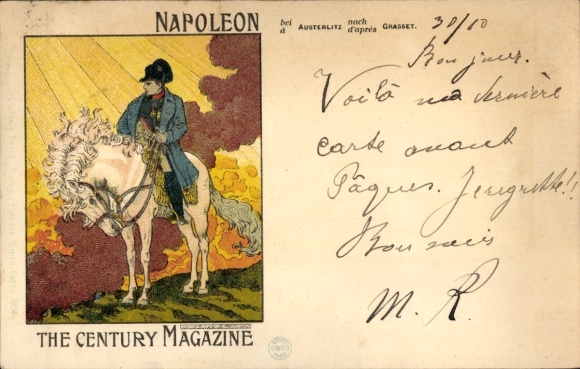 NAPOLEON
bei à AUSTERLITZ nach d'après GRASSET.
30/10
Bonjour.
Voilà ma dernière
carte avant
Pâques. Je regrette!!
Bonsoir
M. R.
THE CENTURY MAGAZINE